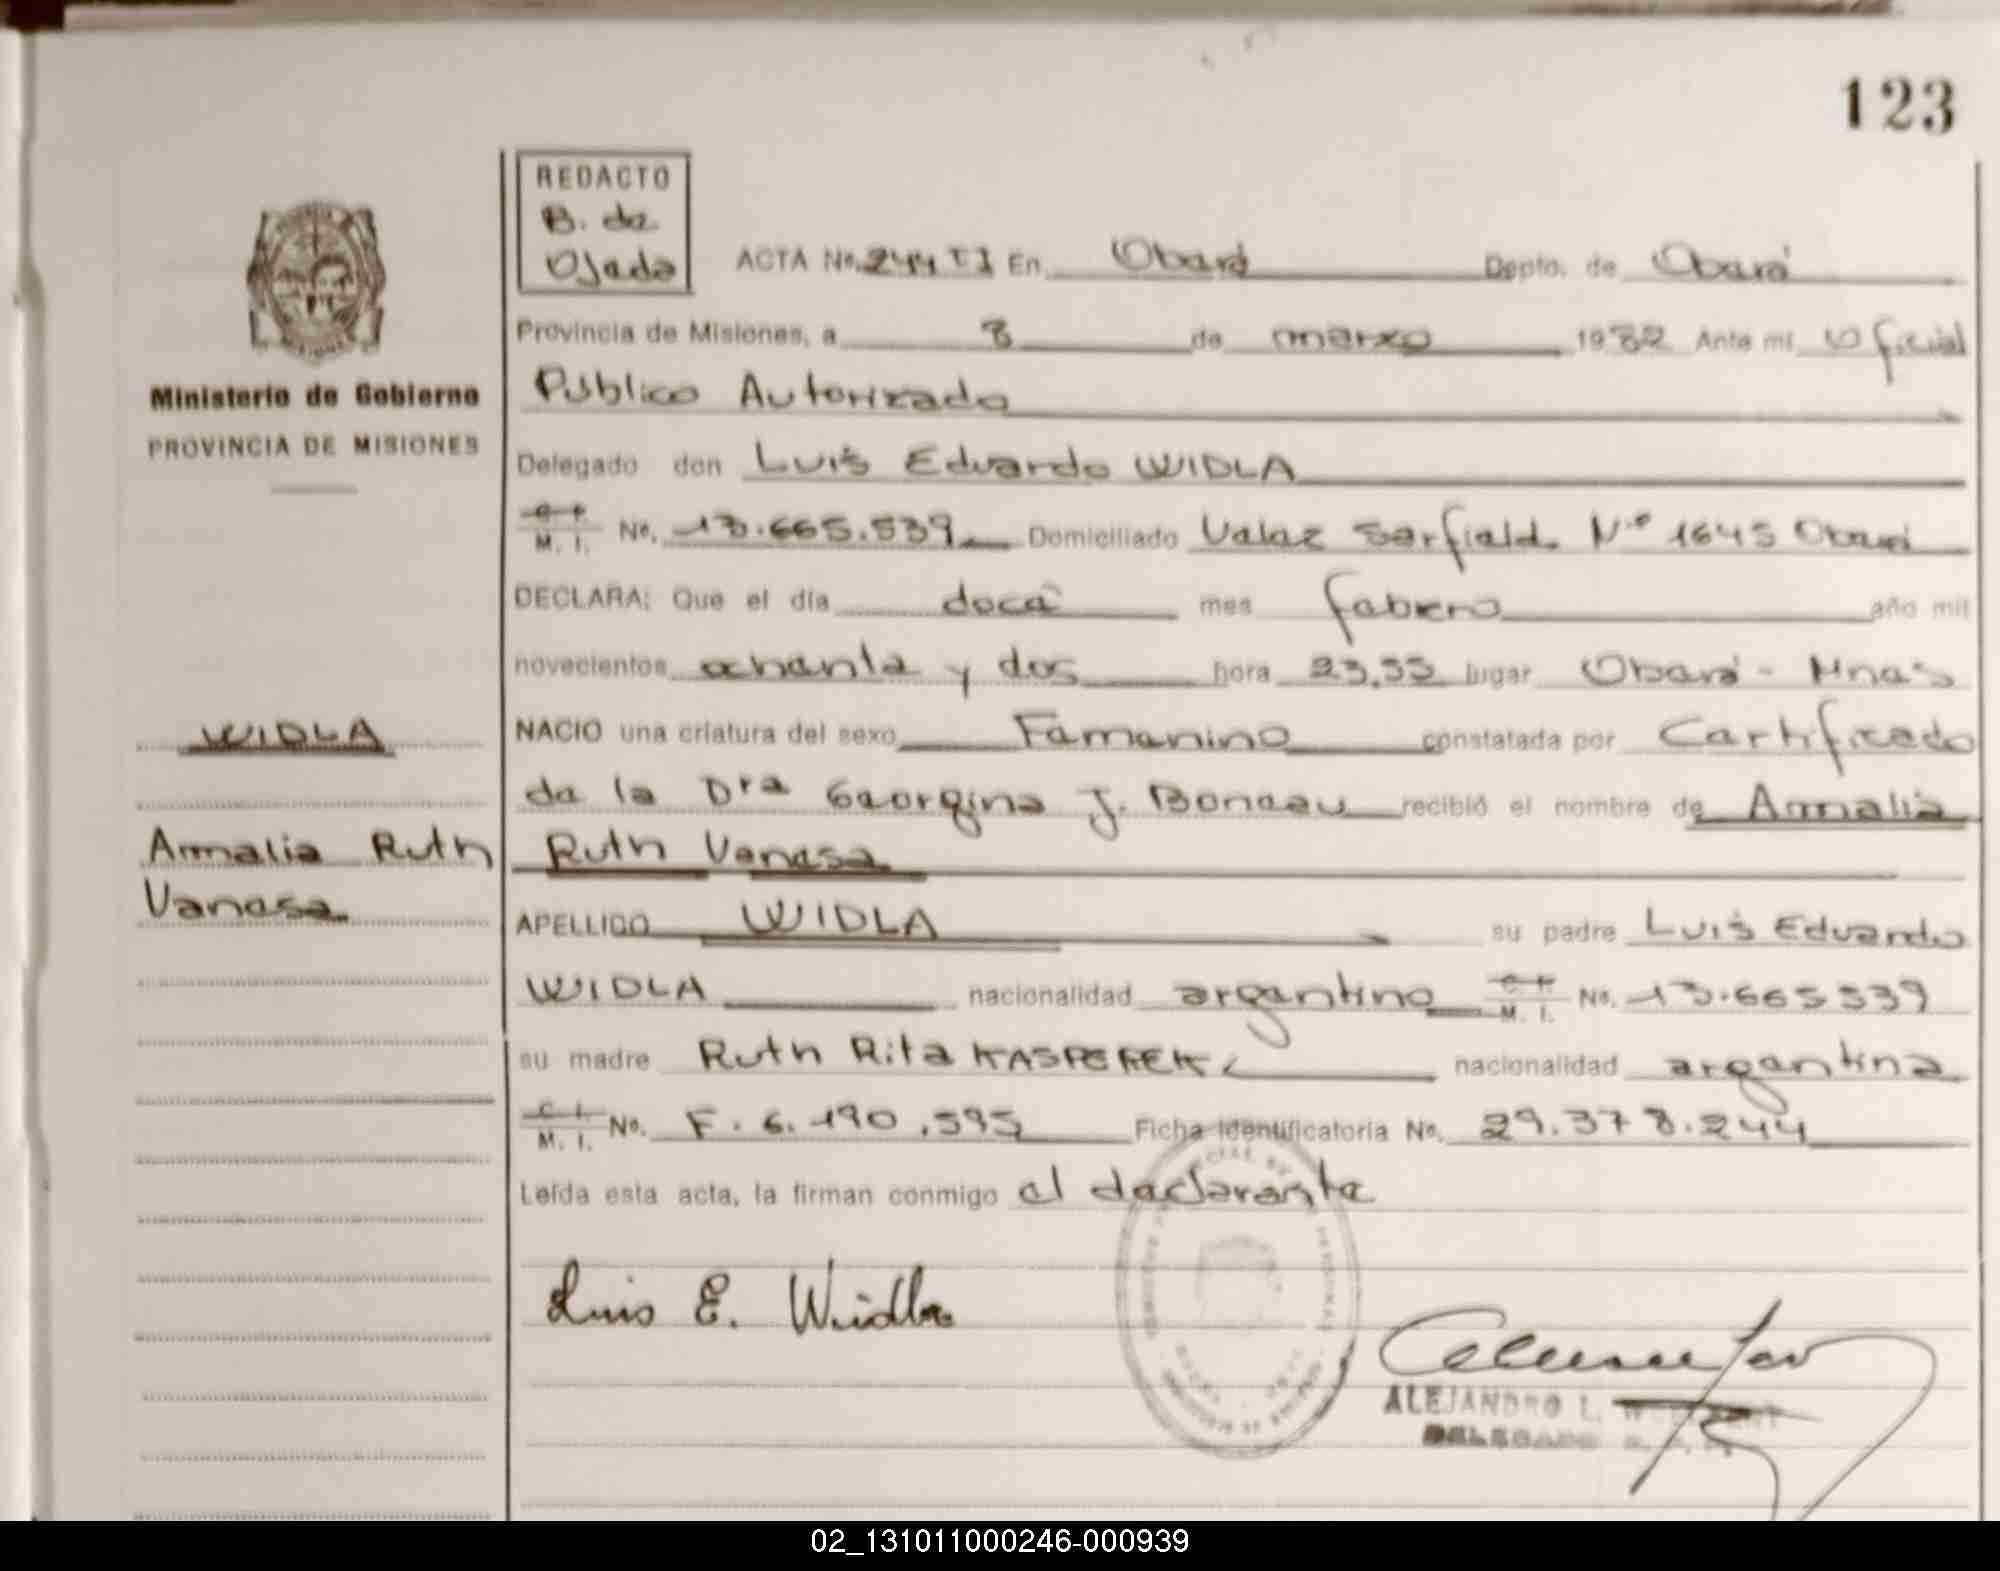 123
REDACTO
B. de
Ojeda
ACTA No. 244 TI En Oberá Depto. de Oberá
Provincia de Misiones, a 8 de marzo 1982 Ante mi Oficial
Ministerio de Gobierno
Público Autorizado
PROVINCIA DE MISIONES
Delegado don Luis Eduardo WIDLA
C. I.
M. I. No. 13.665.539 Domiciliado Velez Sarfield N° 1645 Oberá
DECLARA: Que el día doce mes febrero año mil
novecientos ochenta y dos hora 23,55 lugar Oberá - Mnes
WIDLA
NACIO una criatura del sexo Femenino constatada por Certificado
de la Dra Georgina J. Boneau recibió el nombre de Amalia
Amalia Ruth
Ruth Vanesa
Vanesa
APELLIDO WIDLA su padre Luis Eduardo
WIDLA nacionalidad argentino C. I.
M. I. No. 13.665539
su madre Ruth Rita KASPEREK nacionalidad argentina
C. I.
M. I. No. F. 6.190.595 Ficha identificatoria No. 29.378.244
Leída esta acta, la firman conmigo el declarante
Luis E. Widla
ALEJANDRO L.
DELEGADO
02_131011000246-000939